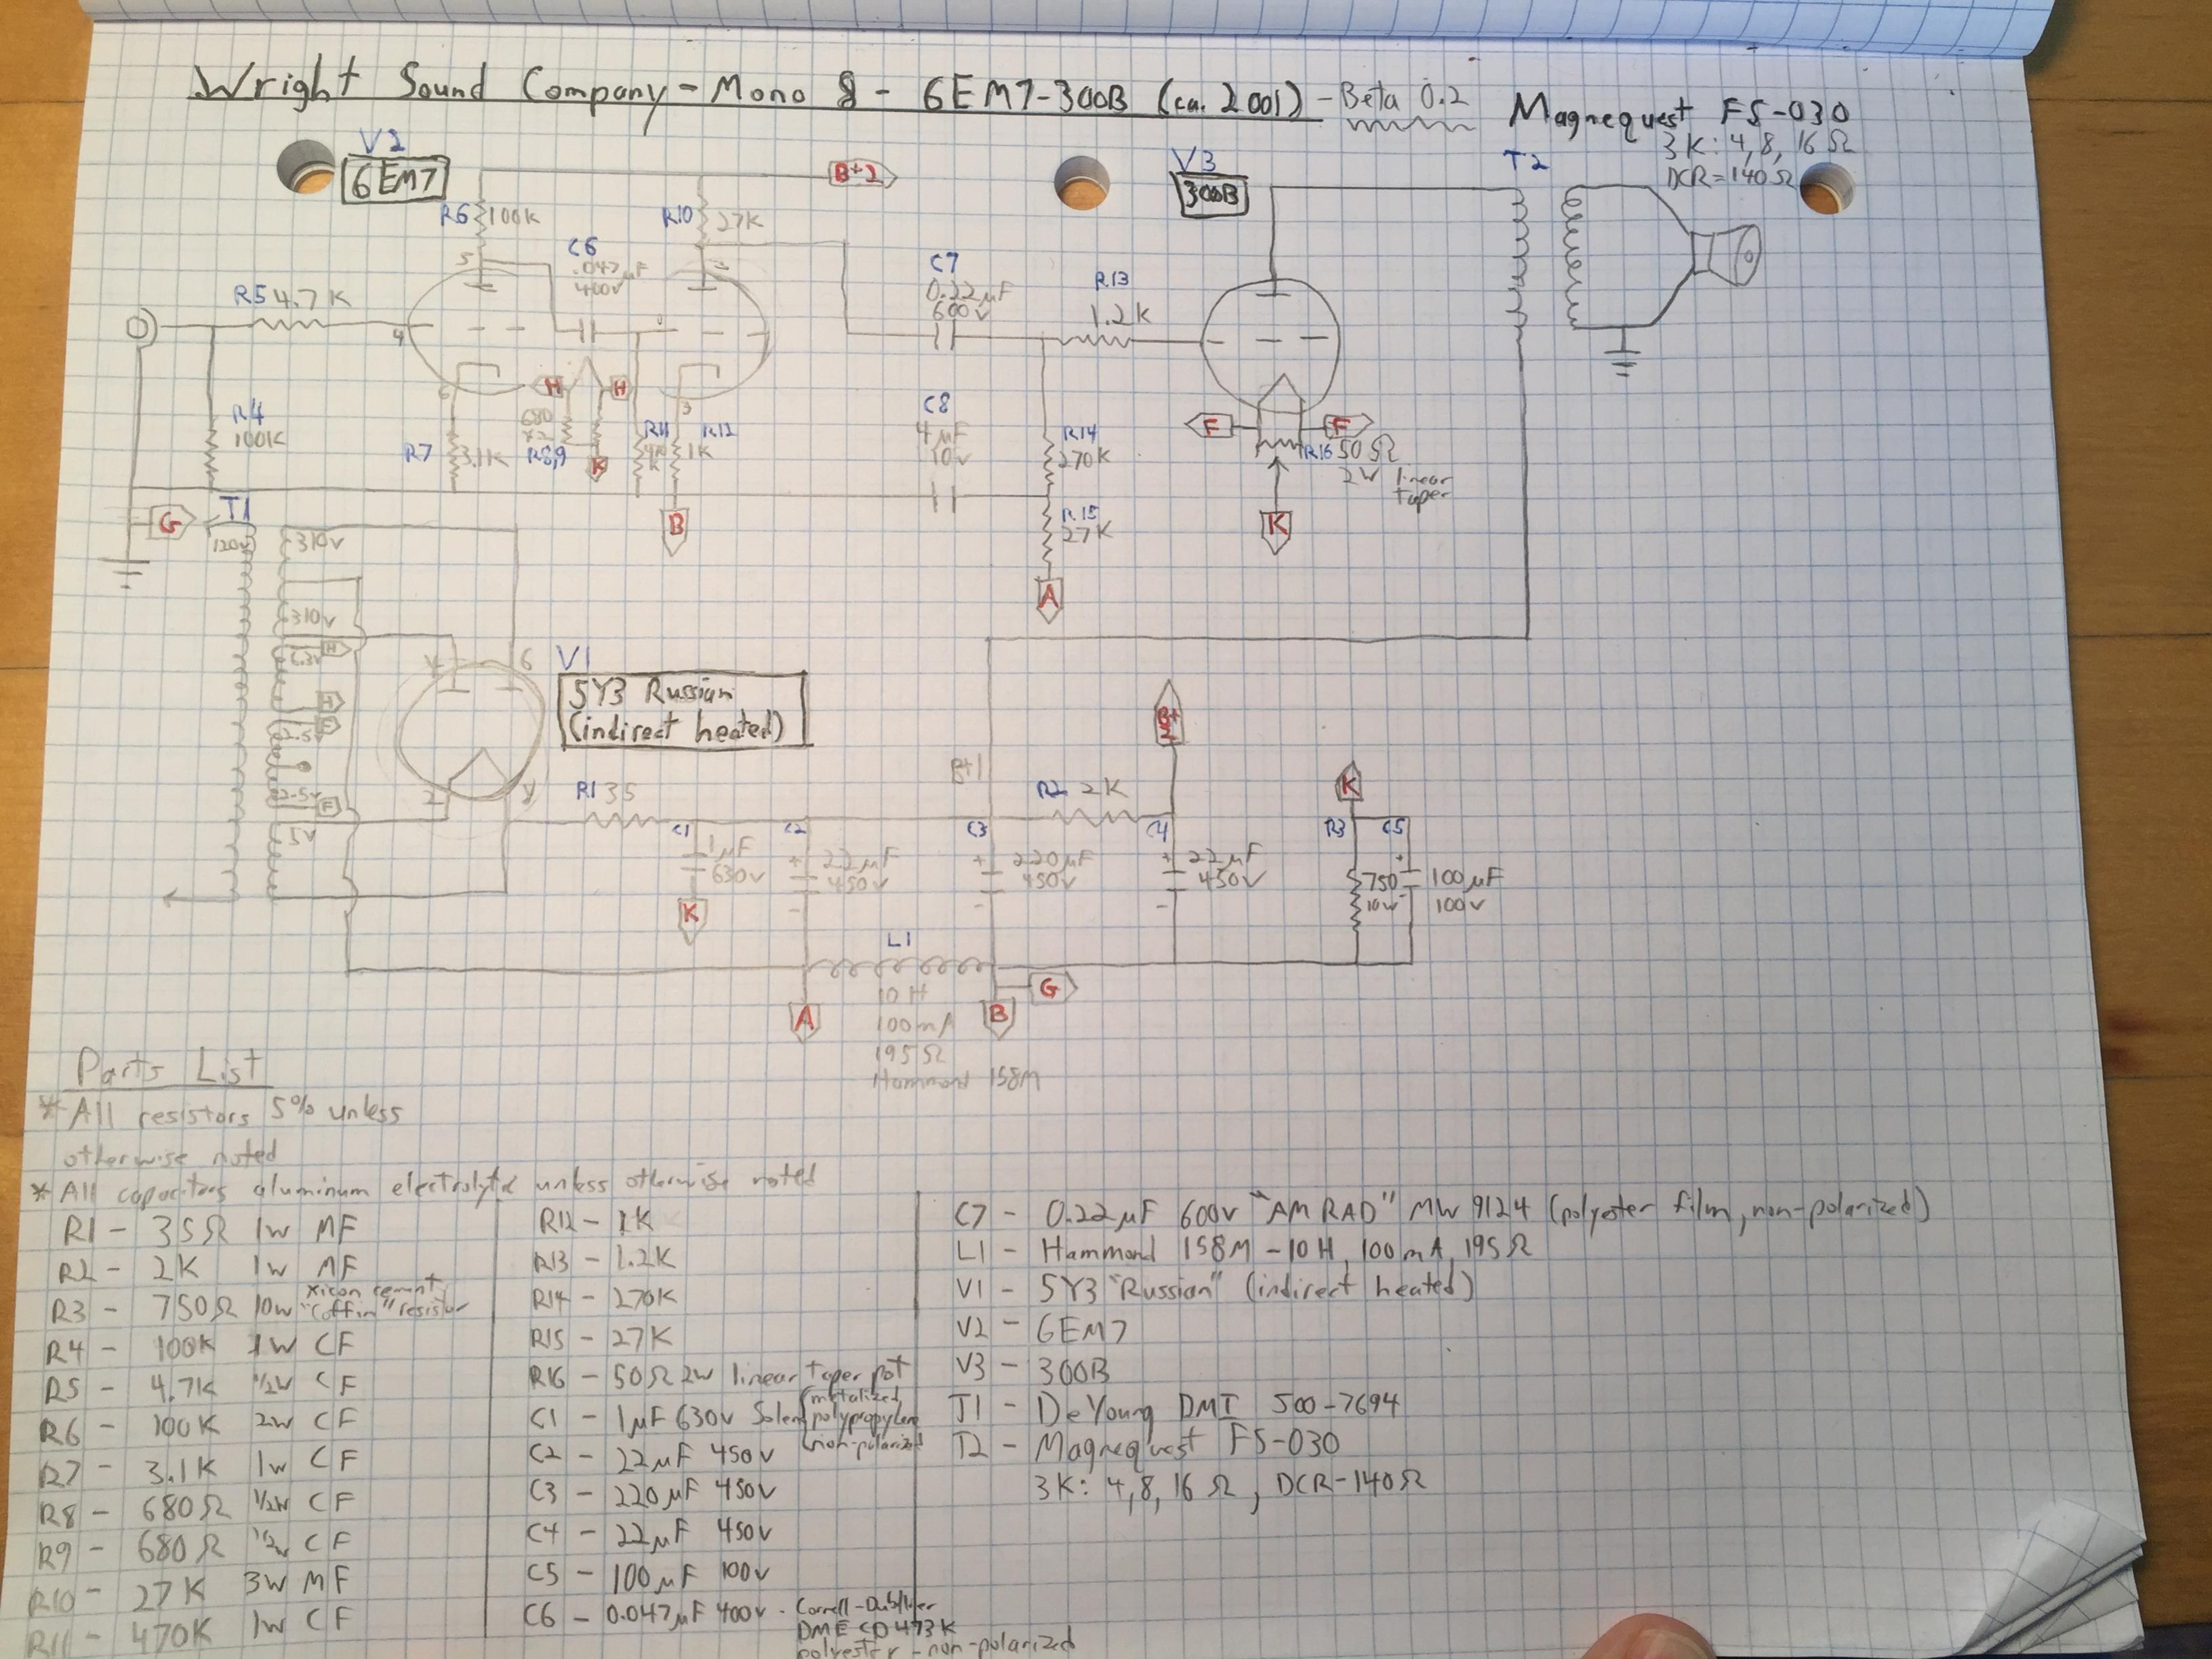 Wright Sound Company - Mono 8 - 6EM7-300B (ca. 2001) - Beta 0.2
Magnequest FS-030
3K: 4, 8, 16 Ω
DCR=140Ω
V2
6EM7
B+2
V3
300B
T2
R6 100K
R10 27K
C6
.047µF
400V
5
R5 4.7K
4
C7
0.22µF
600V
R13
1.2K
R4
100K
R7 3.1K
6
H
H
680
x2
R8,9
K
R11
R12
1K
3
C8
4µF
10V
R14
270K
F
F
R16 50Ω
2W linear
taper
G
T1
120V
310V
B
R15
27K
K
A
310V
H
6.3V
4
6
V1
5Y3 Russian
(indirect heated)
H
F
2.5V
2.5V
F
5V
2
B+1
B+2
R1 35
R2 2K
K
C1
1µF
630V
K
C2
+
22µF
450V
-
C3
+
220µF
450V
-
C4
+
22µF
450V
-
R3
750
10W
C5
+
100µF
100V
L1
A
10H
100mA
195Ω
Hammond 158M
B
G
Parts List
* All resistors 5% unless
otherwise noted
* All capacitors aluminum electrolytic unless otherwise noted
R1 - 35Ω 1W MF
R2 - 2K 1W MF
R3 - 750Ω 10W Xicon cement "Coffin" resistor
R4 - 100K 1W CF
R5 - 4.7K 1/2W CF
R6 - 100K 2W CF
R7 - 3.1K 1W CF
R8 - 680Ω 1/2W CF
R9 - 680Ω 1/2W CF
R10 - 27K 3W MF
R11 - 470K 1W CF
R12 - 1K
R13 - 1.2K
R14 - 270K
R15 - 27K
R16 - 50Ω 2W linear taper pot
C1 - 1µF 630V Solen (metalized polypropylene non-polarized)
C2 - 22µF 450V
C3 - 220µF 450V
C4 - 22µF 450V
C5 - 100µF 100V
C6 - 0.047µF 400V - Cornell-Dubilier
DME CD 473K
polyester - non-polarized
C7 - 0.22µF 600V "AMRAD" MW 9124 (polyester film, non-polarized)
L1 - Hammond 158M - 10H, 100mA, 195Ω
V1 - 5Y3 "Russian" (indirect heated)
V2 - 6EM7
V3 - 300B
T1 - DeYoung DMI 500-7694
T2 - Magnequest FS-030
3K: 4, 8, 16 Ω, DCR-140Ω